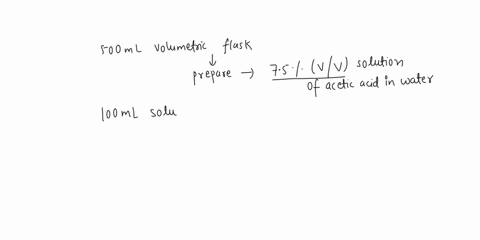 500mL volumetric flask
↓
prepare → 7.5% (V/V) solution
of acetic acid in water
100mL solu